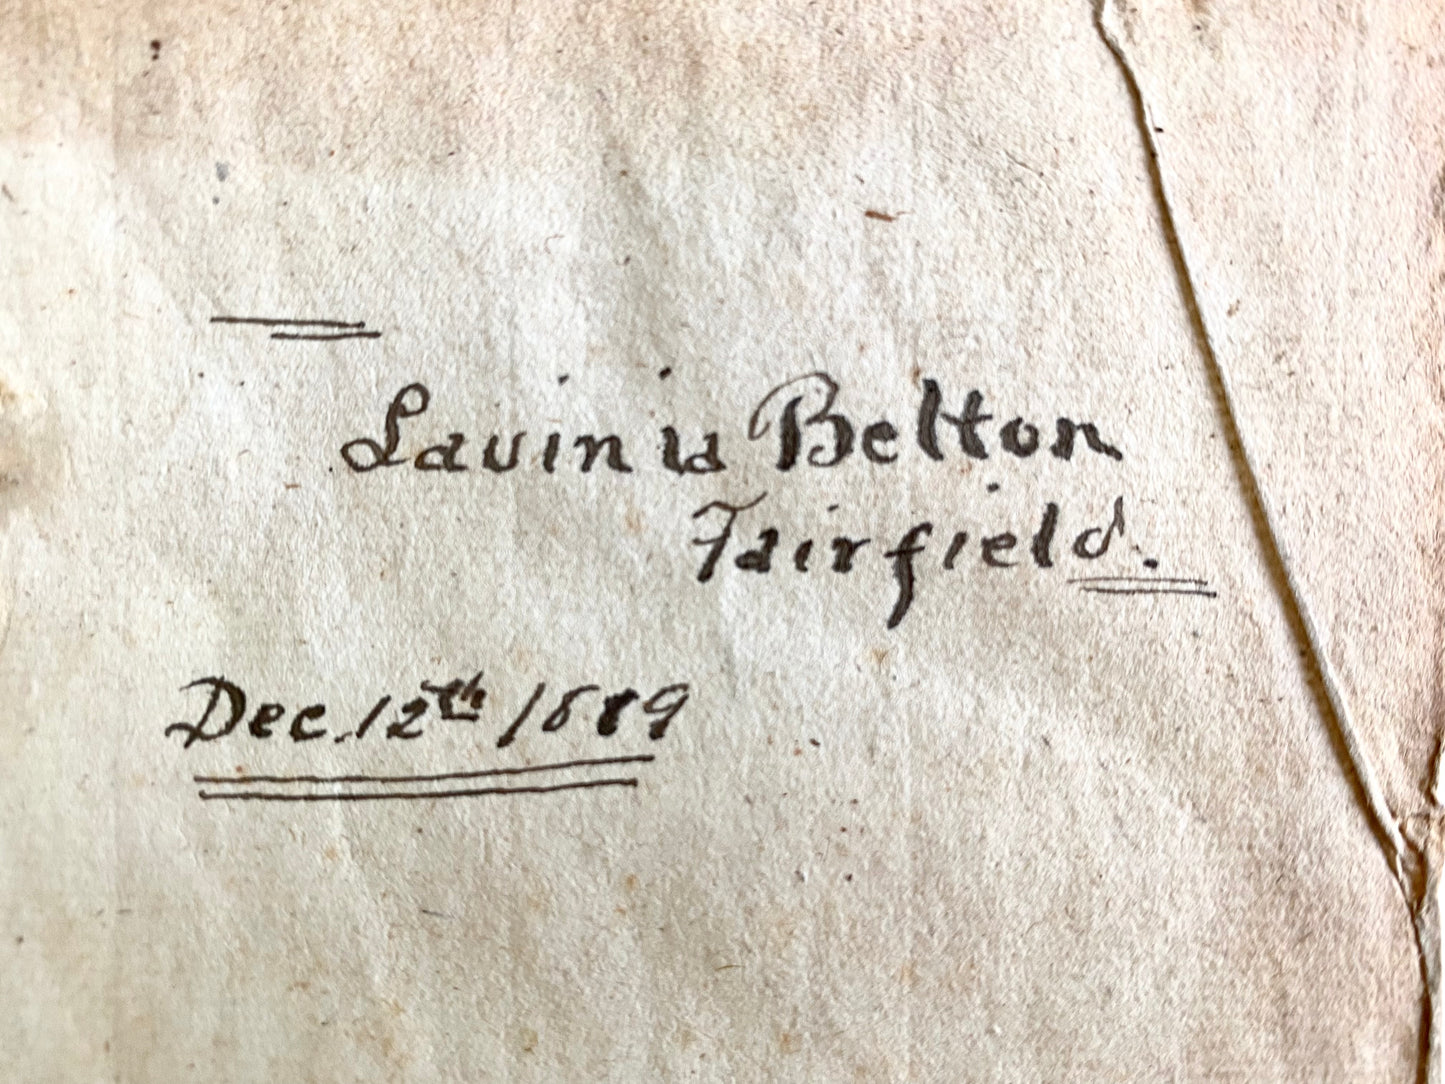 Lavinia Belton
Fairfield.
Dec. 12th 1889